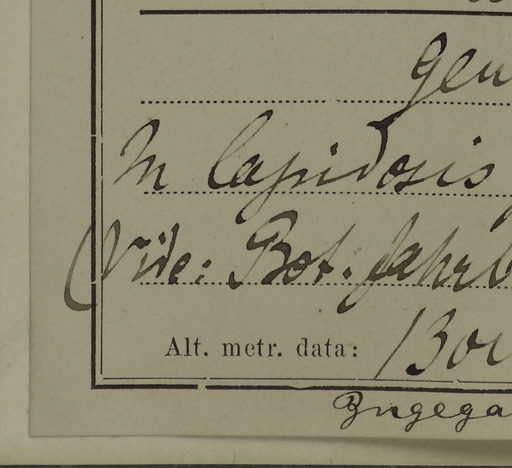 gen
In lapidosis
(Vide: Bot. Jahrb
Alt. metr. data: 130
Engega